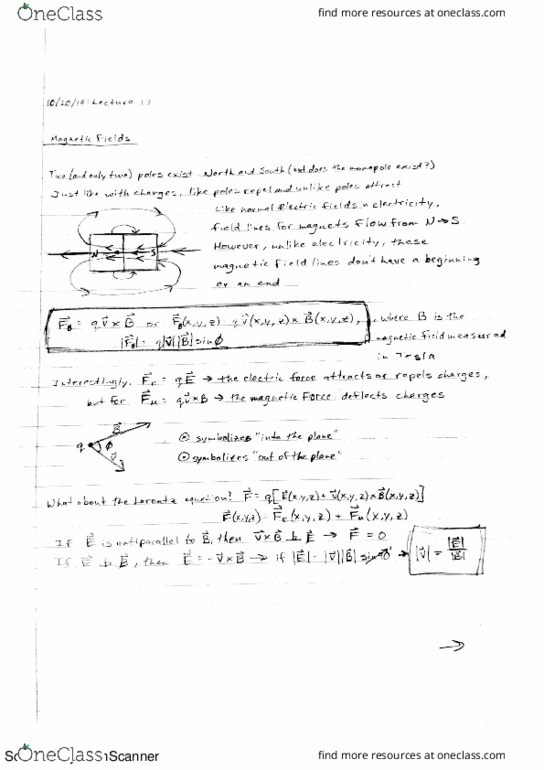 OneClass
find more resources at oneclass.com
10/20/10: Lecture 11
Magnetic Fields
Two (and only two) poles exist North and South (but does the monopole exist?)
Just like with charges, like poles repel and unlike poles attract
Like normal electric fields in electricity,
field lines for magnets flow from N→S
However, unlike electricity, these
magnetic field lines don't have a beginning
or an end
N S
F⃗_B = q v⃗ × B⃗ or F⃗_B(x,y,z) q v⃗(x,y,z) × B⃗(x,y,z), where B is the
|F⃗_B| = q|v⃗||B⃗| sin φ magnetic field measured
in Tesla
Interestingly, F⃗_E = qE⃗ → the electric force attracts or repels charges,
but for F⃗_M = q v⃗ × B → the magnetic force deflects charges
B⃗
q φ
v⃗
⊗ symbolizes "into the plane"
⊙ symbolizes "out of the plane"
What about the Lorentz equation? F⃗ = q[E⃗(x,y,z) + v⃗(x,y,z) × B⃗(x,y,z)]
F⃗(x,y,z) = F⃗_E(x,y,z) + F⃗_M(x,y,z)
If E⃗ is antiparallel to B⃗, then v⃗ × B⃗ ⊥ E⃗ → F⃗ = 0
If E⃗ ⊥ B⃗, then E⃗ = - v⃗ × B⃗ → if |E⃗| = |v⃗||B⃗| → |v⃗| = |E⃗|/|B⃗|
→
OneClass
Scanner
find more resources at oneclass.com